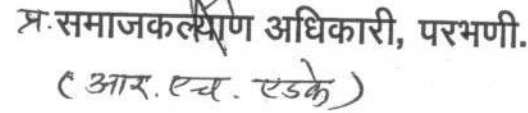 प्र.समाजकल्याण अधिकारी, परभणी.
(आर. एच. एडके)